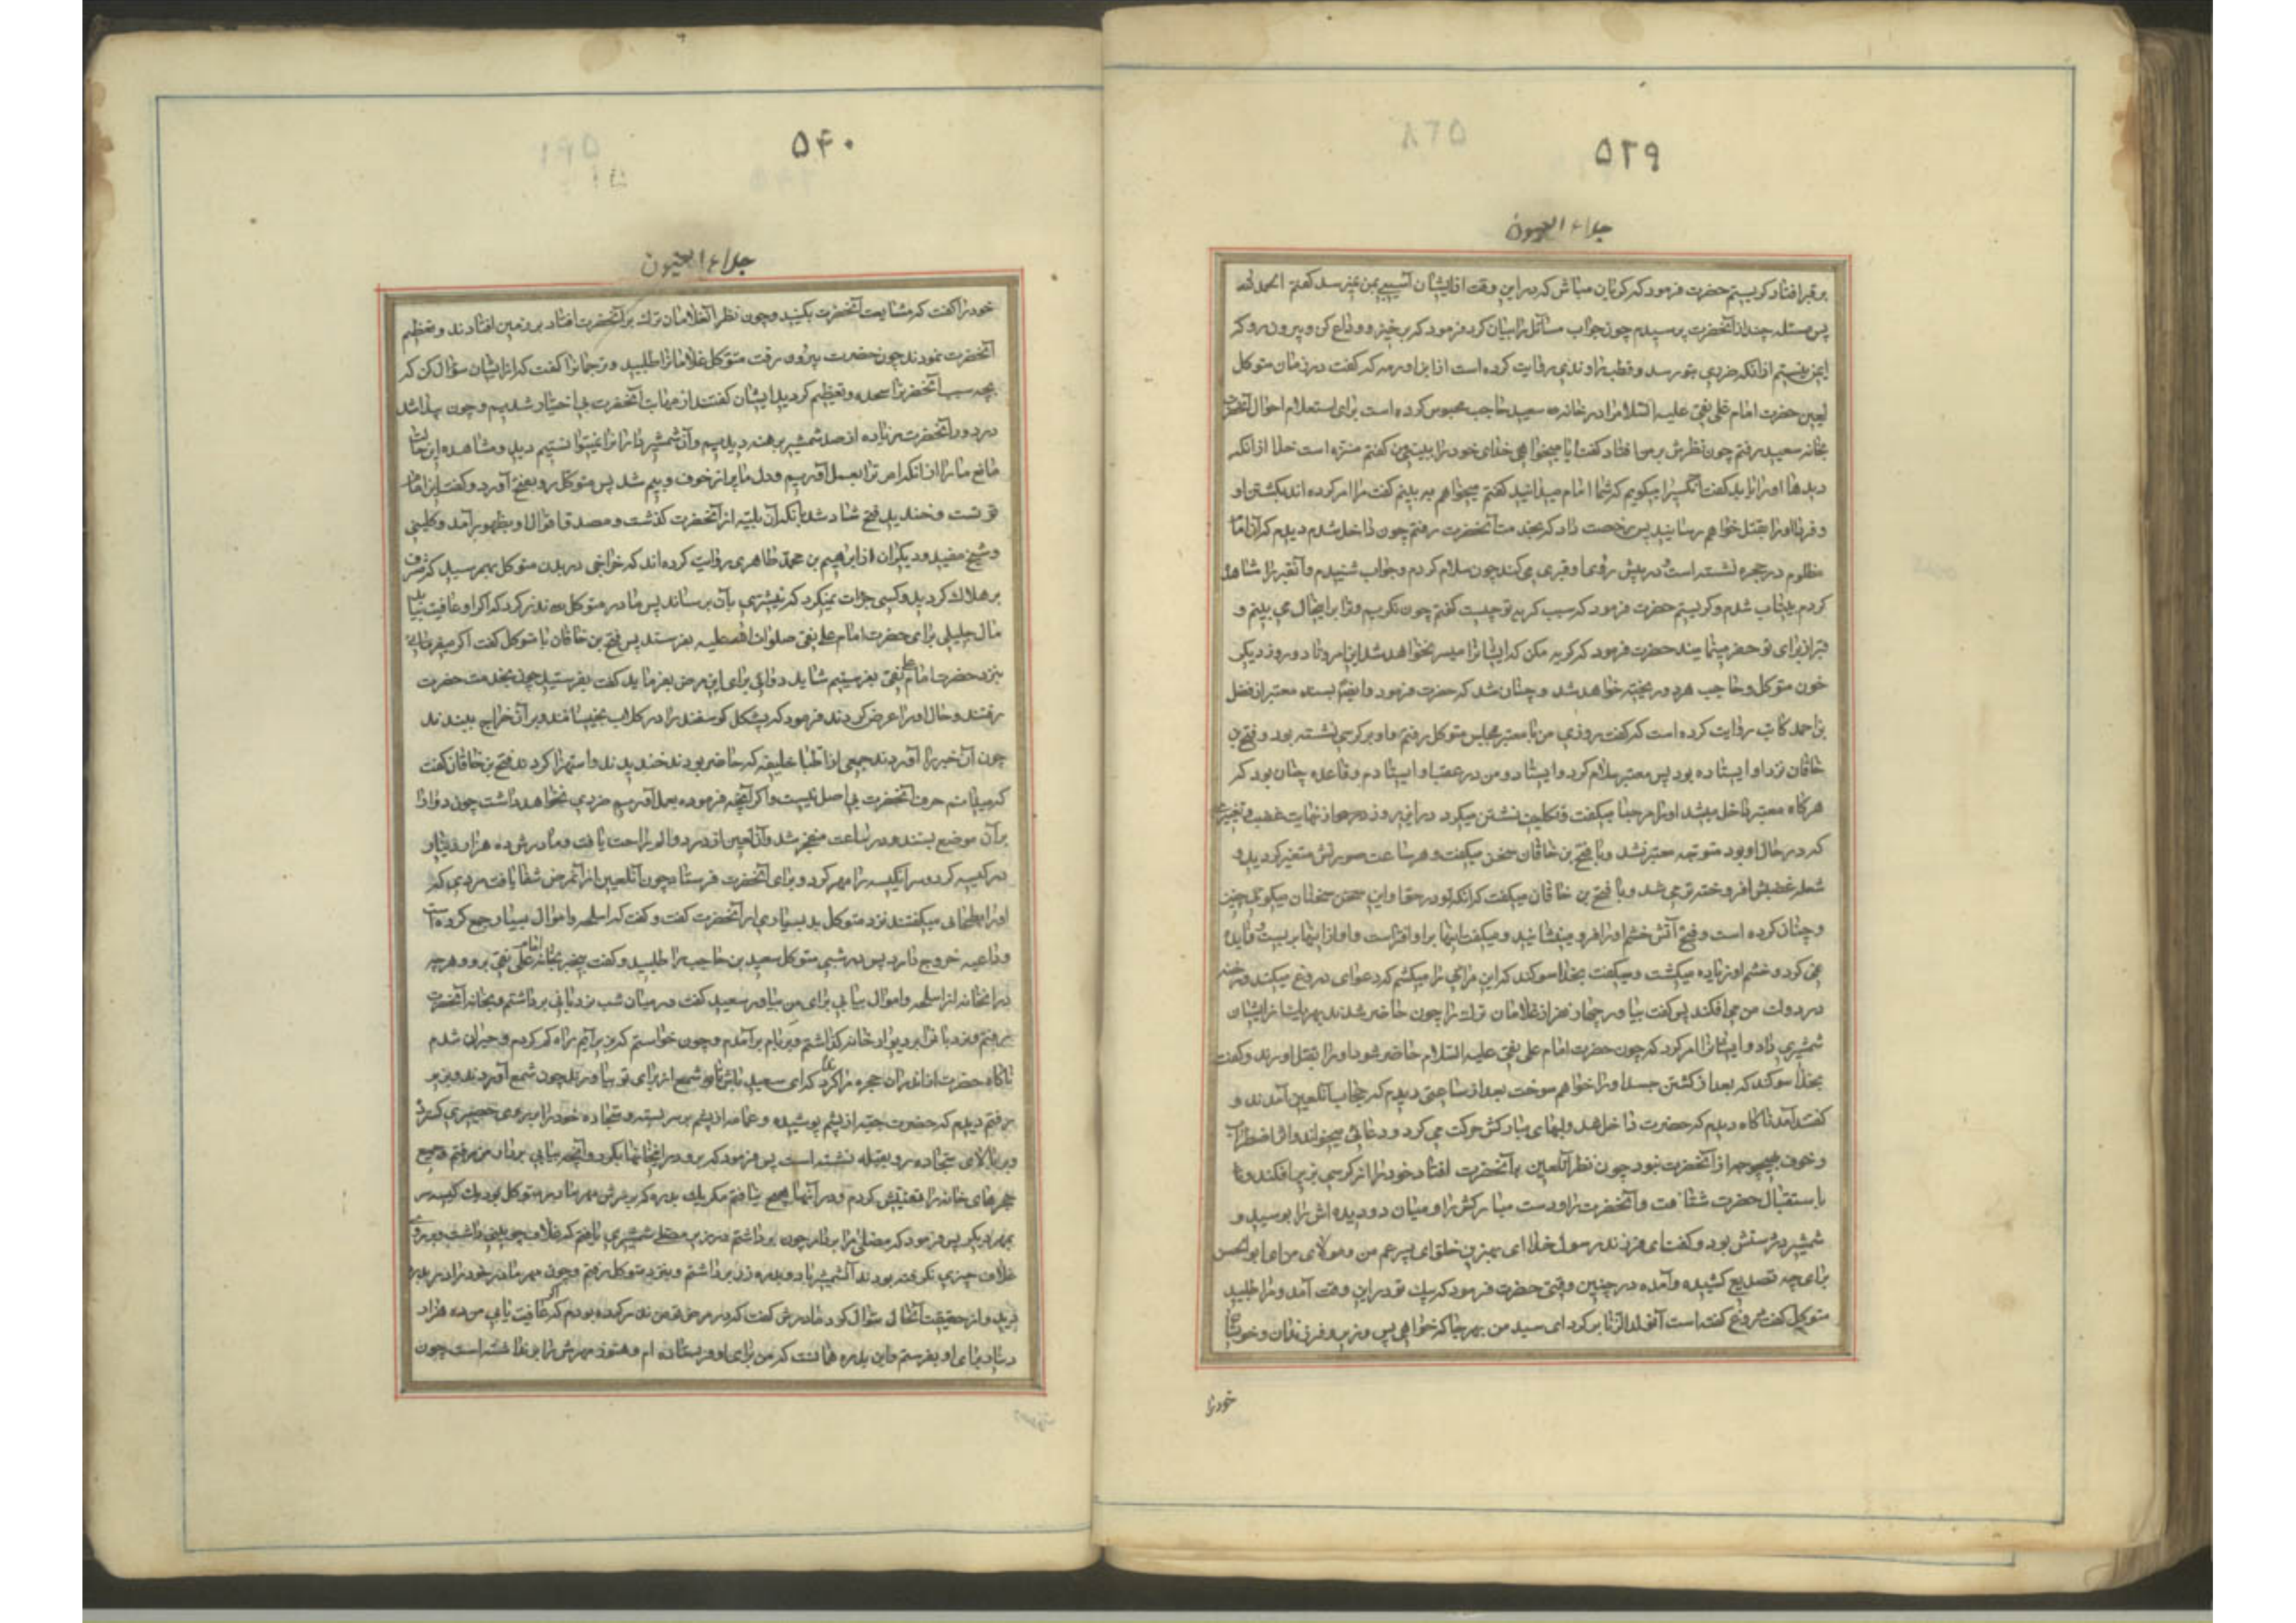 ۵۳۹
جلاء العیون
بر قبر افتاد کریستم حضرت فرمود که کریان مباش که در این وقت از ایشان آسیبی بمن نمیرسد کفتم الحمد لله
پس مسئله چند از آنحضرت پرسیدم چون جواب مسائل را بیان کرد فرمود که برخیز و وداع کن و بیرون رو که
ایمن نیستم از انکه ضرری بتو رسد و قطب راوندی روایت کرده است از ابن اورمه که کفت در زمان متوکل
لعین حضرت امام علی نقی علیه السلام را در خانه سعید حاجب محبوس کرده است برای استعلام احوال آنحضرت
بخانه سعید رفتم چون نظرش بر من افتاد کفت ایا میخواهی خدای خود را ببینی من کفتم منزه است خدا از انکه
دیدها او را یابد کفت آنکسرا میکویم که شما امام میدانید کفتم میخواهم ببینم کفت مرا امر کرده اند بکشتن او
و فردا او را بقتل خواهم رسانید پس رخصت داد که بخدمت آنحضرت رفتم چون داخل شدم دیدم که آن امام
مظلوم در حجره نشسته است و در پیش روی او قبری می کنند چون سلام کردم و جواب شنیدم و آنقبر را مشاهده
کردم بیتاب شدم و کریستم حضرت فرمود که سبب کریه تو چیست کفتم چون نکریم و ترا بر اینحال می بینم و
قبر از برای تو حفر مینمایند حضرت فرمود که کریه مکن که ایشانرا میسر نخواهد شد این امر و تا دو روز دیکر
خون متوکل و حاجب هر دو ریخته خواهد شد و چنان شد که حضرت فرمود و ایضا بسند معتبر از فضل
بن احمد کاتب روایت کرده است که کفت روزی من با معتز بمجلس متوکل رفتم و او بر کرسی نشسته بود و فتح بن
خاقان نزد او ایستاده بود پس معتز سلام کرد و ایستاد و من در عقب او ایستادم و قاعده چنان بود که
هرکاه معتز داخل میشد او را مرحبا میکفت و تکلیف نشستن میکرد در این روز از نهایت غضب و تغییری
که در حال او بود متوجه معتز نشد و با فتح بن خاقان سخن میکفت و هر ساعت صورتش متغیر کردید و
شعله غضبش افروخته تر می شد و با فتح بن خاقان میکفت که انکه تو در حق او این سخن سخنان میکوئی چنین
و چنان کرده است و فتح آتش خشم او را فرو مینشانید و میکفت اینها بر او افتراست و او از اینها بریست و فایده
نمی کرد و خشم او زیاده میکشت و میکفت بخدا سوکند که این مرائی را میکشم که دعوای دروغ میکند و رخنه
در دولت من می افکند پس کفت بیاور چهار نفر از غلامان ترک را چون حاضر شدند بهر یک از ایشان
شمشیری داد و ایشانرا امر کرد که چون حضرت امام علی نقی علیه السلام حاضر شود او را بقتل اورند و کفت
بخدا سوکند که بعد از کشتن جسد او را خواهم سوخت بعد از ساعتی دیدم که حجاب آنلعین آمدند و
کفتند آمد ناکاه دیدم که حضرت داخل شد و لبهای مبارکش حرکت می کرد و دعائی میخواند و اثر اضطراب
و خوف بهیچوجه از آنحضرت نبود چون نظر آنلعین بر آنحضرت افتاد خود را از کرسی بزیر افکند و تا
باستقبال حضرت شتافت و آنحضرت را و دست مبارکش را و میان دو دیده اش را بوسید و
شمشیر در دستش بود و کفت ای فرزند رسول خدا ای بهترین خلق ای پسر عم من و مولای من ای ابو الحسن
برای چه تصدیع کشیده و آمده در چنین وقتی حضرت فرمود که پیک تو در این وقت آمد و مرا طلبید
متوکل کفت دروغ کفته است آن ولد الزنا برکرد ای سید من بهر جا که خواهی پس وزیر و فرزندان و خویشان
خود را
۵۴۰
جلاء العیون
خود را کفت که مشایعت آنحضرت بکنید و چون نظر آنغلامان ترک بر آنحضرت افتاد بر زمین افتادند و تعظیم
آنحضرت نمودند چون حضرت بیرون رفت متوکل غلامانرا طلبید و ترجمانرا کفت که از ایشان سؤال کن که
بچه سبب آنحضرترا سجده و تعظیم کردید ایشان کفتند از مهابت آنحضرت بی اختیار شدیم و چون پیدا شد
در دور آنحضرت زیاده از صد شمشیر برهنه دیدیم و آن شمشیر دارانرا نمیتوانستیم دید و مشاهده این حالت
مانع ما را از انکه امر ترا بعمل آوریم و دل ما پر از خوف و بیم شد پس متوکل رو بفتح آورد و کفت این امام
تو است و خندید فتح شاد شد بانکه آن بلیه از آنحضرت کذشت و مصداق اقوال او بظهور آمد و کلینی
و شیخ مفید و دیکران از ابراهیم بن محمد طاهری روایت کرده اند که خراجی در بدن متوکل بهم رسید که مشرف
بر هلاک کردید و کسی جرات نمیکرد که نیشتری بان برساند پس مادر متوکل نذر کرد که اکر او عافیت بیابد
مال جلیلی برای حضرت امام علی نقی صلوات الله علیه بفرستد پس فتح بن خاقان با متوکل کفت اکر میفرمائی
بنزد حضرت امام علی نقی بفرستیم شاید دوائی برای این مرض بفرماید کفت بفرستید چون بخدمت حضرت
رفتند و حال او را عرض کردند فرمود که پشکل کوسفند را در کلاب بخیسانند و بر آن خراج ببندند
چون آن خبر را آوردند جمعی از اطبا خلیفه که حاضر بودند خندیدند و استهزا کردند فتح بن خاقان کفت
که میدانم حرف آنحضرت بی اصل نیست و اکر آنچه فرموده بعمل آوریم ضرری نخواهد داشت چون دوا را
بر آن موضع بستند در ساعت منفجر شد و آن لعین از درد و الم راحت یافت و مادرش ده هزار دینار
در کیسه کرد و سر آنکیسه را مهر کرد و برای آنحضرت فرستاد چون آنلعین از آنمرض شفا یافت مردی که
او را بطحائی میکفتند نزد متوکل بد بسیاری از آنحضرت کفت و کفت که اسلحه و اموال بسیار جمع کرده است
و داعیه خروج دارد پس در شبی متوکل سعید بن حاجب را طلبید و کفت بیخبر بخانه امام علی نقی برو و هرچه
در انخانه از اسلحه و اموال بیابی برای من بیاور سعید کفت در میان شب نردبانی برداشتم و بخانه آنحضرت
رفتم و نردبانرا بر دیوار خانه کذاشتم و بر بام برآمدم و چون خواستم که بزیر آیم راه کم کردم و حیران شدم
ناکاه حضرت از اندران حجره ندا کرد که ای سعید باش تا شمع از برای تو بیاورند چون شمع آوردند و بزیر
رفتم دیدم که حضرت جبه از پشم پوشیده و عمامه از پشم بر سر بسته و سجاده خود را بر روی حصیری کسترده
و بر بالای سجاده رو بقبله نشسته است پس فرمود که برو در انخانها بکرد و آنچه بیابی بردار من رفتم و جمیع
حجرهای خانه را تفتیش کردم و در آنها هیچ نیافتم مکر یک بدره که بر سرش مهر مادر متوکل بود و یک کیسه سر
بمهر دیکر پس فرمود که مصلی مرا بردار چون برداشتم در زیر مصلی شمشیری یافتم که غلاف چوبینی داشت و بر روی
غلاف چیزی نکرفته بودند آنشمشیر را با دو بدره زر برداشتم و بنزد متوکل رفتم و چون مهر مادر خود را در بدره
دید و از حقیقت آنحال سئوال کرد مادرش کفت که در مرض تو من نذر کرده بودم که اکر عافیت یابی من ده هزار
دینار برای او بفرستم و این بدره همانست که من برای او فرستاده ام و هنوز مهرش را بر نداشته است چون